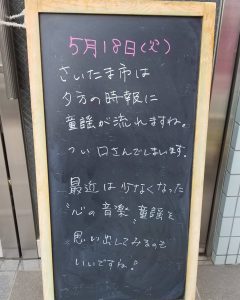 5月18日(火)
さいたま市は
夕方の時報に
童謡が流れますね。
つい口さんでしまいます。
最近は少なくなった
“心の音楽”童謡を
思い出してみるのも
いいですね！